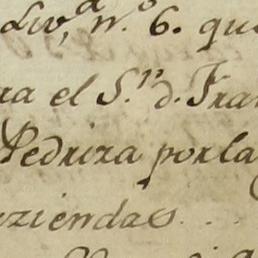 Liv,ᵃ n.º 6. que
ra el S.ⁿ d. Fran
Pedriza por la
aziendas